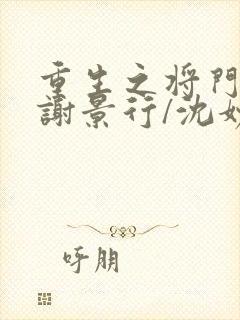 重生之将門
謝景行/沈妙
呼朋